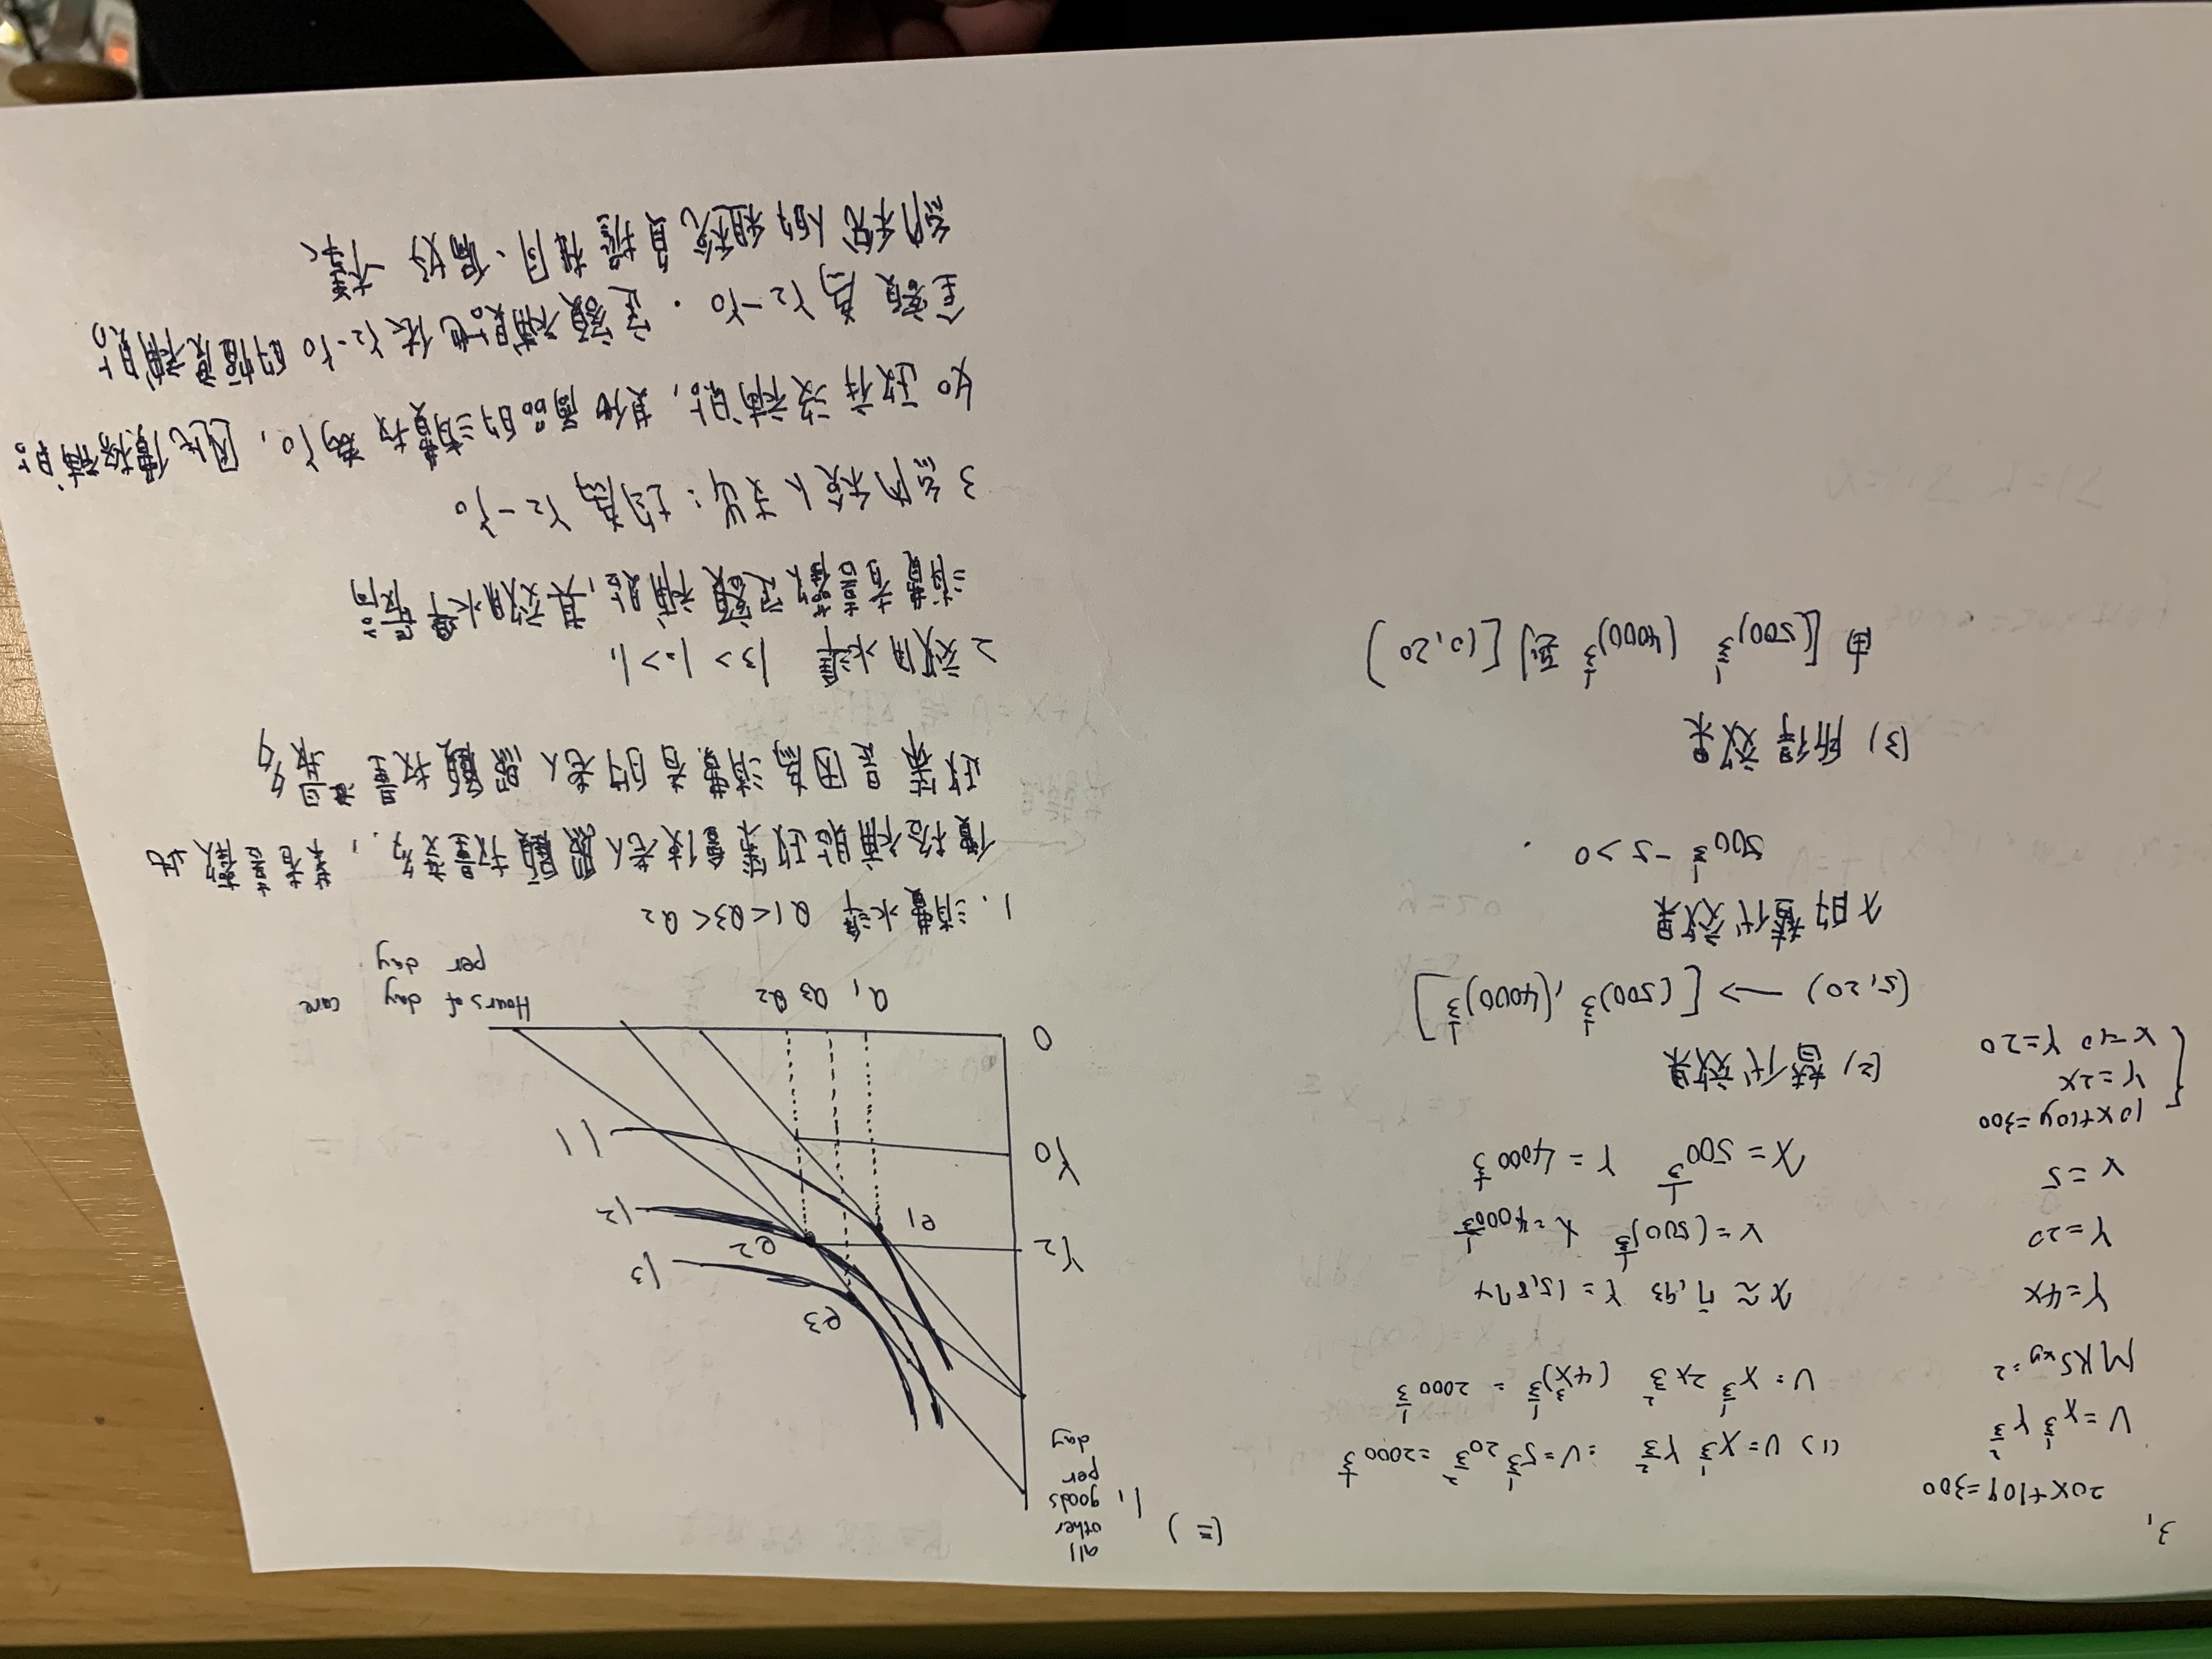 3.
20X+10Y=300
U=X^{1/3} Y^{2/3}
MRSxy=2
Y=4X
Y=20
X=5
{ 10X+10Y=300
Y=2X
X=10 Y=20
(1) U=X^{1/3} Y^{2/3} : U=5^{1/3} 20^{2/3} =2000^{1/3}
U=X^{1/3} 2X^{2/3} (4X^3)^{1/3} = 2000^{1/3}
X≈7.93 Y=15.874
X=(500)^{1/3} X=4000^{1/3}
X=500^{1/3} Y=4000^{1/3}
(2) 替代效果
(5,20) → [(500)^{1/3}, (4000)^{1/3}]
X的替代效果
500^{1/3} -5>0
(3) 所得效果
由[(500)^{1/3} (4000)^{1/3} 到[10,20)
(二) 1.
all
other
goods
per
day
e3
e2
e1
l3
l2
l1
Y2
Y0
0
Q1 Q3 Q2
Hours of day care
per day
1. 消費水準 Q1<Q3<Q2
價格補貼政策會使老人照顧數量變多, 業者喜歡此
政策 是因為消費者的老人照顧數量 最多
2 效用水準 l3> l2> l1
消費者喜歡定額補貼,其效用水準最高
3 納稅人支出: 均為 Y2-Y0
如政府沒補貼, 其他商品的消費 為Y0, 因此價格補貼
金額為Y2-Y0. 定額補貼也依Y2-Y0的幅度補貼,
納稅人的租稅負擔相同、偏好一樣